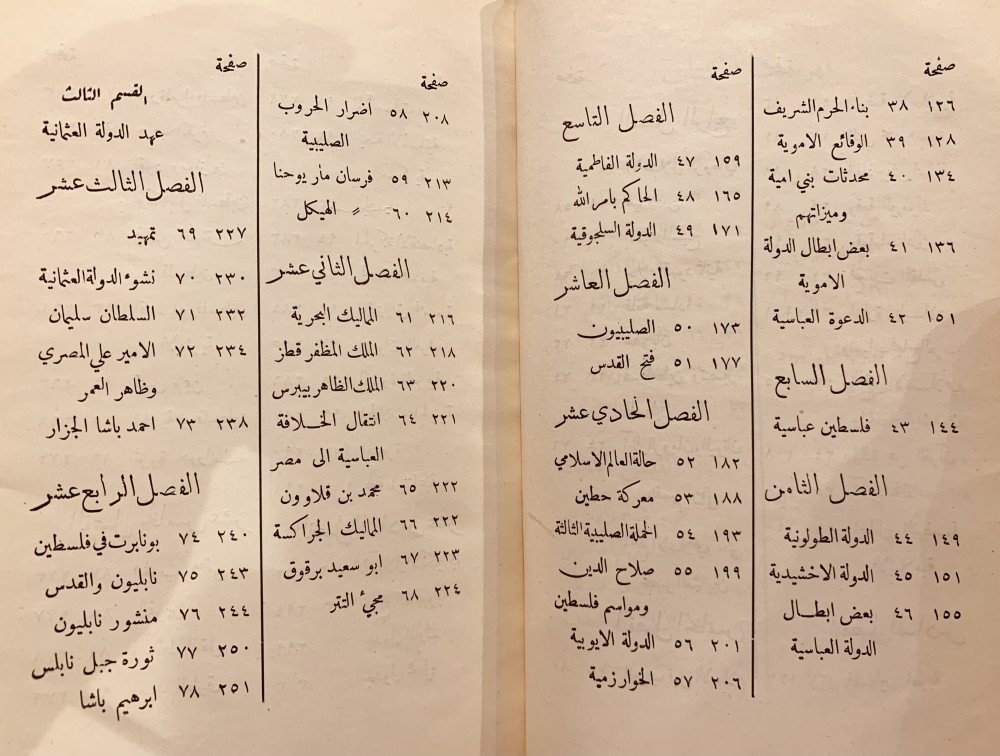 صفحة
١٢٦ ٣٨ بناء الحرم الشريف
١٢٨ ٣٩ الوقائع الاموية
١٣٤ ٤٠ محدثات بني امية
وميزاتهم
١٣٦ ٤١ بعض ابطال الدولة
الاموية
١٥١ ٤٢ الدعوة العباسية
الفصل السابع
١٤٤ ٤٣ فلسطين عباسية
الفصل الثامن
١٤٩ ٤٤ الدولة الطولونية
١٥١ ٤٥ الدولة الاخشيدية
١٥٥ ٤٦ بعض ابطال
الدولة العباسية
صفحة
الفصل التاسع
١٥٩ ٤٧ الدولة الفاطمية
١٦٥ ٤٨ الحاكم بامر الله
١٧١ ٤٩ الدولة السلجوقية
الفصل العاشر
١٧٣ ٥٠ الصليبيون
١٧٧ ٥١ فتح القدس
الفصل الحادي عشر
١٨٢ ٥٢ حالة العالم الاسلامي
١٨٨ ٥٣ معركة حطين
١٩٣ ٥٤ الحملة الصليبية الثالثة
١٩٩ ٥٥ صلاح الدين
ومواسم فلسطين
٢٠١ ٥٦ الدولة الايوبية
٢٠٦ ٥٧ الخوارزمية
صفحة
٢٠٨ ٥٨ اضرار الحروب
الصليبية
٢١٣ ٥٩ فرسان مار يوحنا
٢١٤ ٦٠ 〃 الهيكل
الفصل الثاني عشر
٢١٦ ٦١ المماليك البحرية
٢١٨ ٦٢ الملك المظفر قطز
٢٢٠ ٦٣ الملك الظاهر بيبرس
٢٢١ ٦٤ انتقال الخلافة
العباسية الى مصر
٢٢٢ ٦٥ محمد بن قلاوون
٢٢٢ ٦٦ المماليك الجراكسة
٢٢٣ ٦٧ ابو سعيد برقوق
٢٢٤ ٦٨ مجيء التتر
صفحة
القسم الثالث
عهد الدولة العثمانية
الفصل الثالث عشر
٢٢٧ ٦٩ تمهيد
٢٣٠ ٧٠ نشوء الدولة العثمانية
٢٣٢ ٧١ السلطان سليمان
٢٣٤ ٧٢ الامير علي المصري
وظاهر العمر
٢٣٨ ٧٣ احمد باشا الجزار
الفصل الرابع عشر
٢٤٠ ٧٤ بونابرت في فلسطين
٢٤٣ ٧٥ نابليون والقدس
٢٤٤ ٧٦ منشور نابليون
٢٥٠ ٧٧ ثورة جبل نابلس
٢٥١ ٧٨ ابرهيم باشا